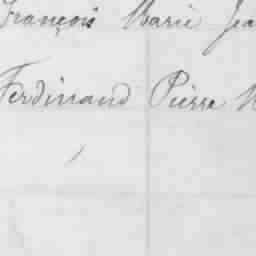 François Marie Jea
Ferdinand Pierre M